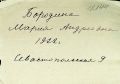 Бородина
Мария Андреевна
1922г.
Севастопольская 9